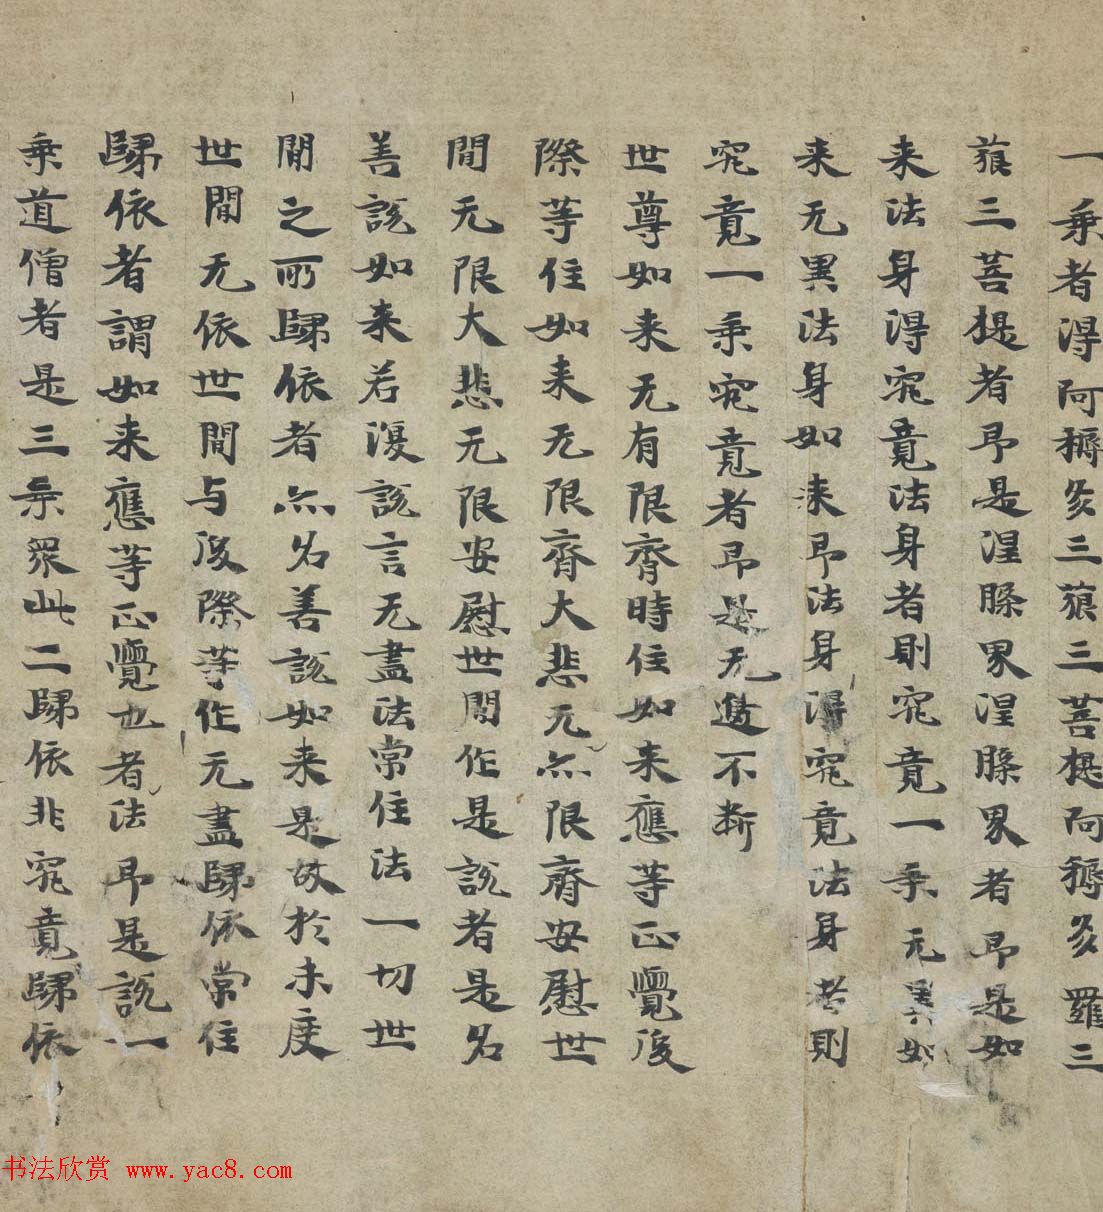 一乗者得阿耨多三藐三菩提阿耨多羅三
藐三菩提者即是涅槃界涅槃界者即是如
来法身得究竟法身者則究竟一乗无異如
来无異法身如来即法身得究竟法身者則
究竟一乗究竟者即是无邊不断
世尊如来无有限齊時住如来應等正覺後
際等住如来无限齊大悲无亦限齊安慰世
間无限大悲无限安慰世間作是說者是名
善說如来若復說言无盡法常住法一切世
間之所歸依者亦名善說如来是故於未度
世間无依世間与後際等作无盡歸依常住
歸依者謂如来應等正覺也者法即是說一
乗道僧者是三乗衆此二歸依非究竟歸依
书法欣赏 www.yac8.com